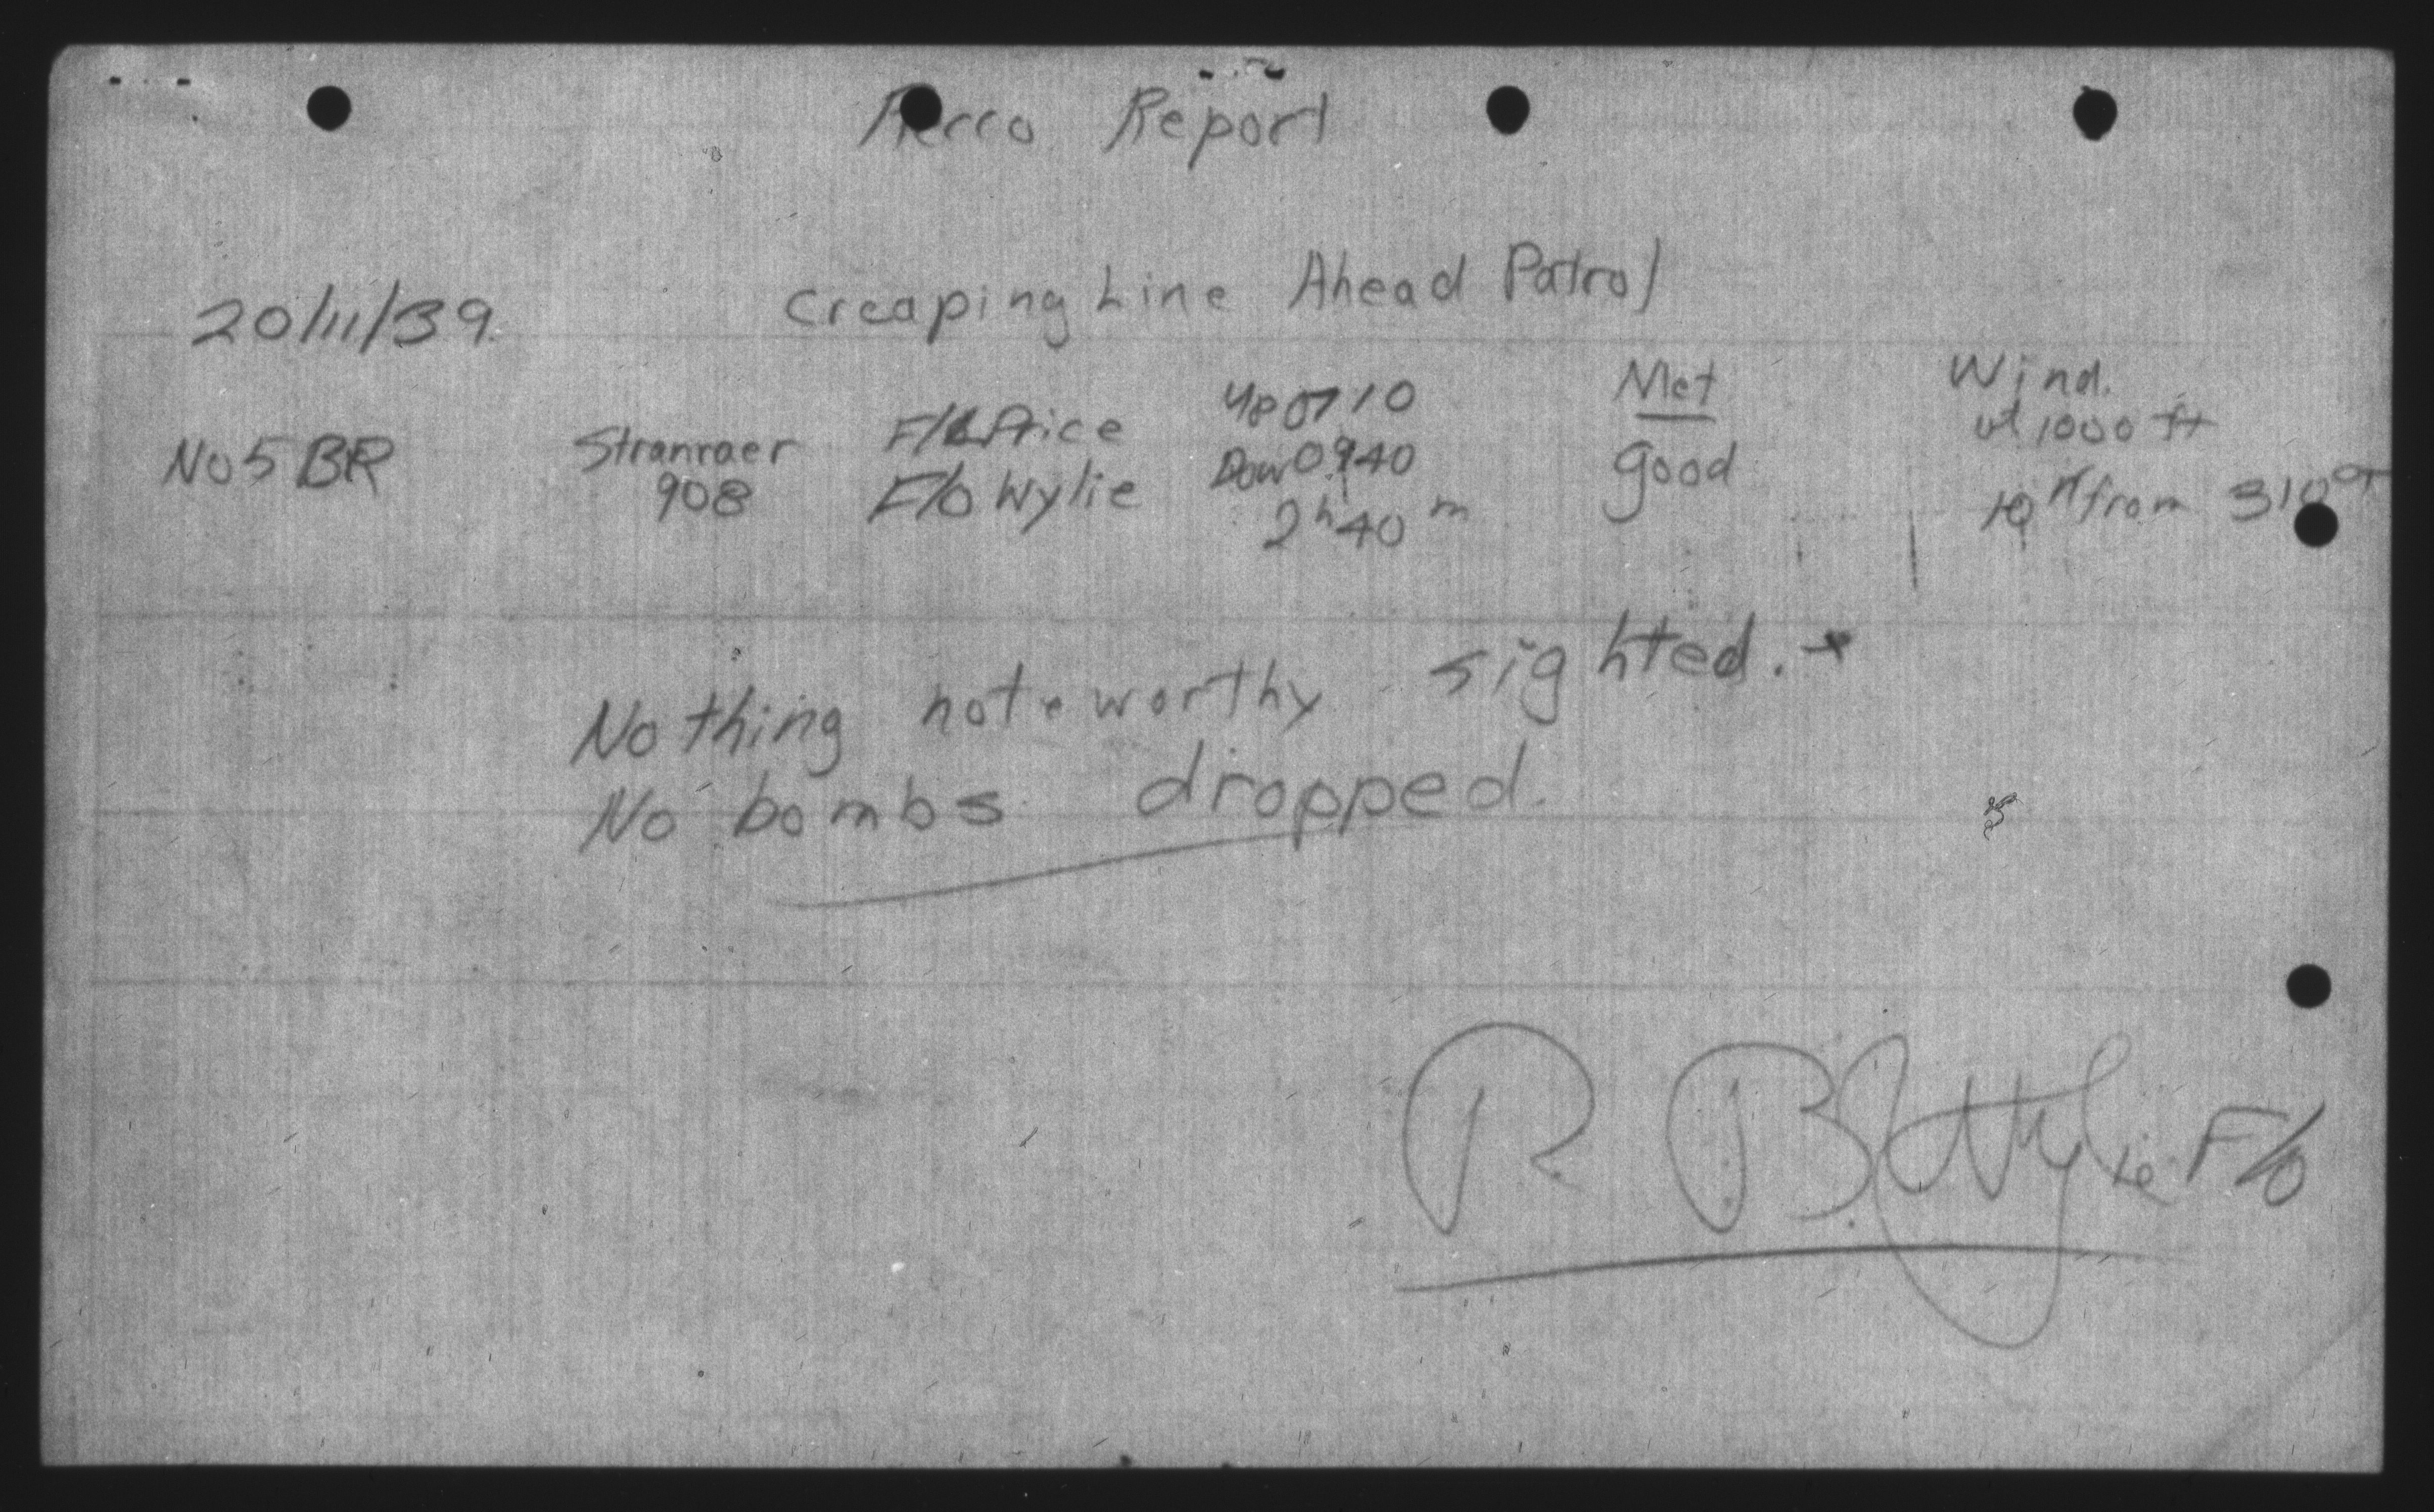 Recco Report
20/11/39. Creaping Line Ahead Patrol
No 5 BR Stranraer 908 F/L Price F/O Wylie
Up 0710
Down 0940
2h 40m
Met
Good
Wind.
at 1000 ft
from 310°T
Nothing noteworthy sighted.
No bombs dropped.
R. B. Wylie F/O